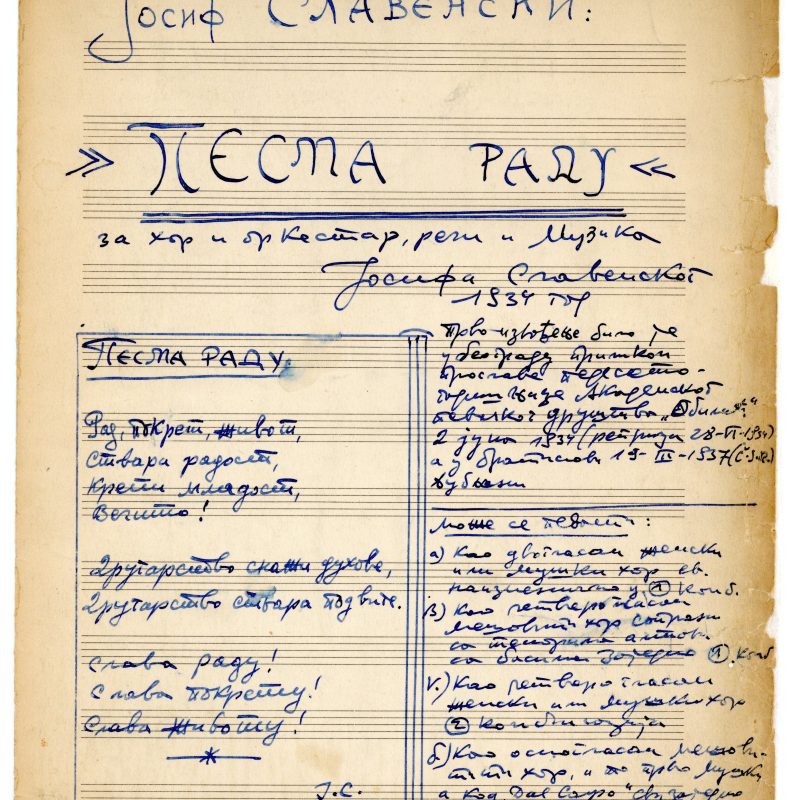 Јосиф Славенски:
» Песма раду «
за хор и оркестар, речи и музика
Јосифа Славенског
1934 год
Песма раду.
Рад, покрет, живот,
ствара радост,
крепи младост,
вечито!
Другарство снажи духове,
Другарство ствара подвиге.
Слава раду!
Слава покрету!
Слава животу!
Ј.С.
Прво извођење било је
у Београду приликом
прославе педесето-
годишњице Академског
певачког друштва „Обилић“
2 јуна 1934 (реприза 28-VI-1934)
а у Братислави 19- -1937
Може се певати:
а) Као двогласан женски
или мушки хор
наизменично у ① Комб.
в) Као четворогласан
мешовит хор сопрани
са тенорима алтови
са басима заједно ①. Комб
v.) Као четворогласан
женски или мушки хор
② комбинација
б) Као осмогласан мешови-
тити хор, и то прво мушки
а код "Dal Capo" сви заједно